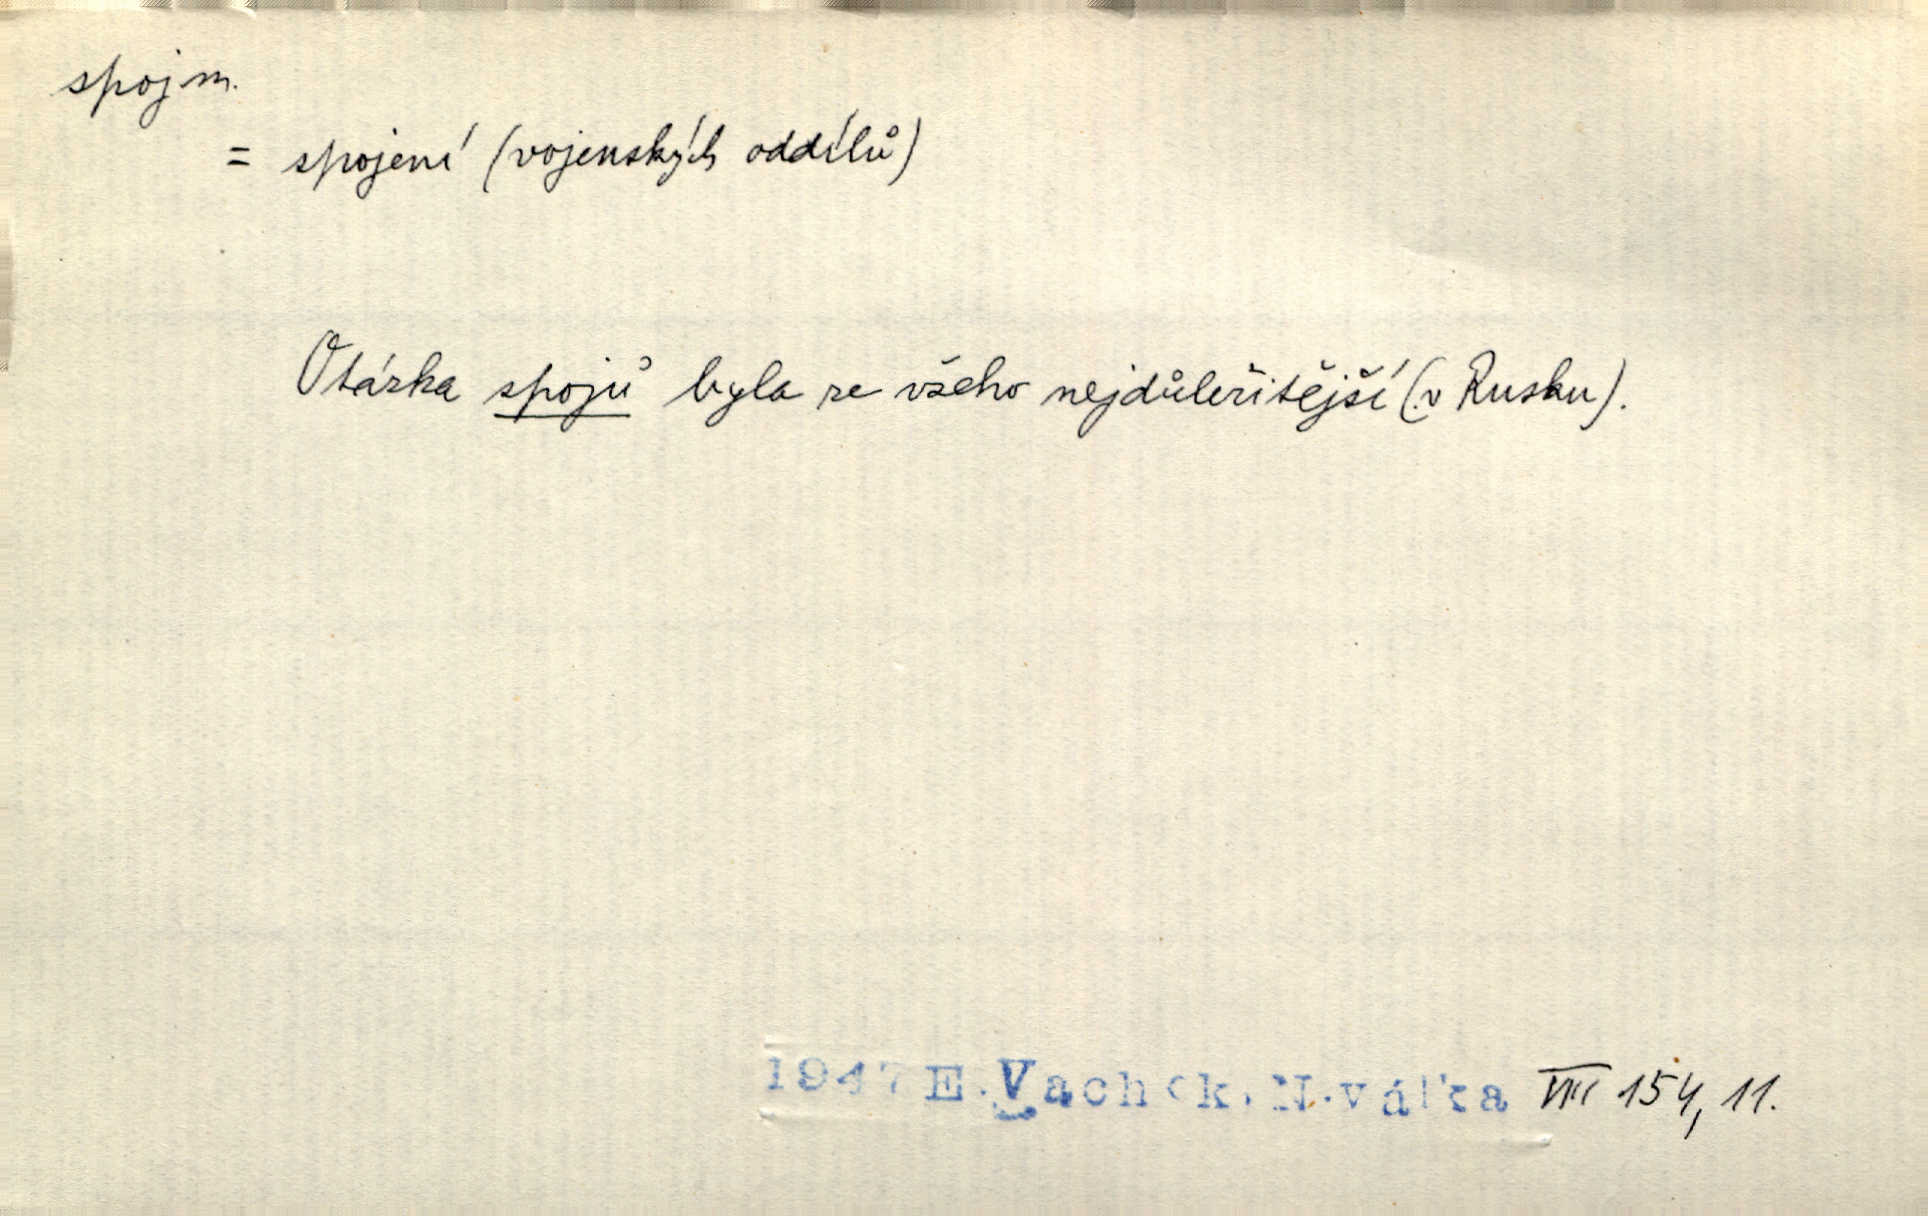 spoj m.
= spojení (vojenských oddílů)
Otázka spojů byla ze všeho nejdůležitější (v Rusku).
1947 E. Vachek, N. válka VIII 154, 11.